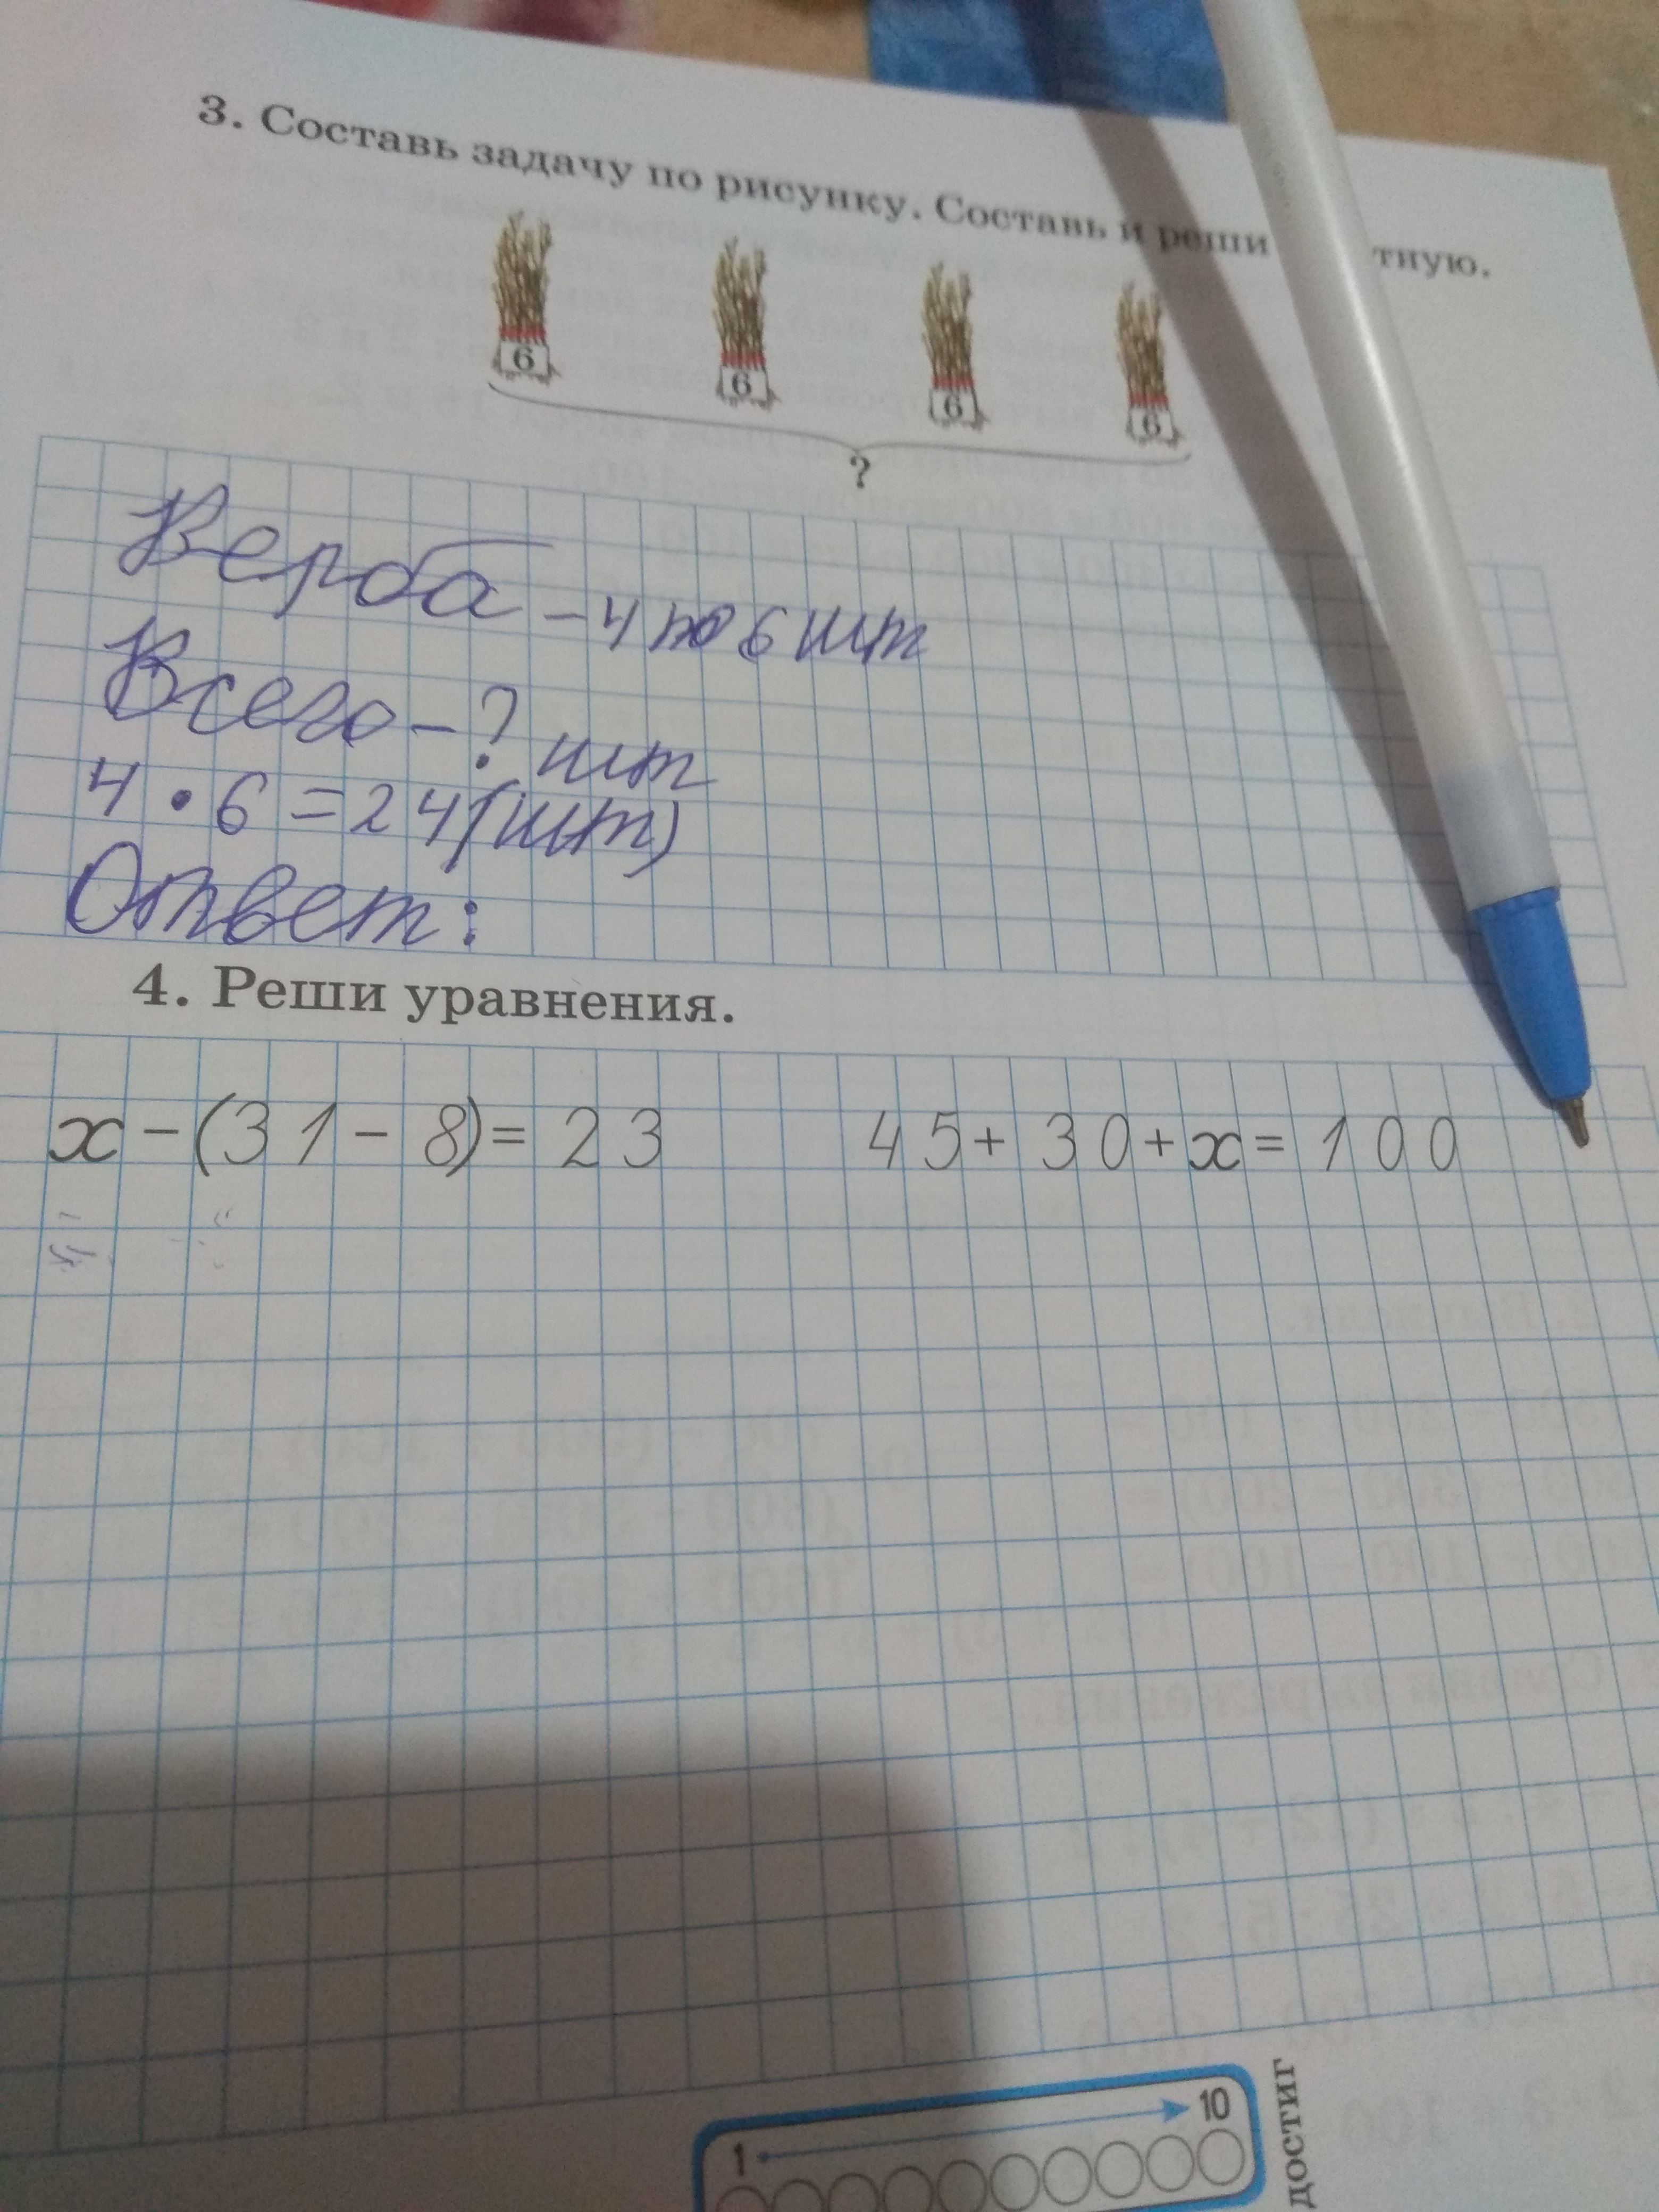 3. Составь задачу по рисунку. Составь и реши тную.
6 6 6 6
?
Верба - 4 по 6 шт
Всего - ? шт
4 · 6 = 24 (шт)
Ответ:
4. Реши уравнения.
x - (31 - 8) = 23 45 + 30 + x = 100
1 10
достиг